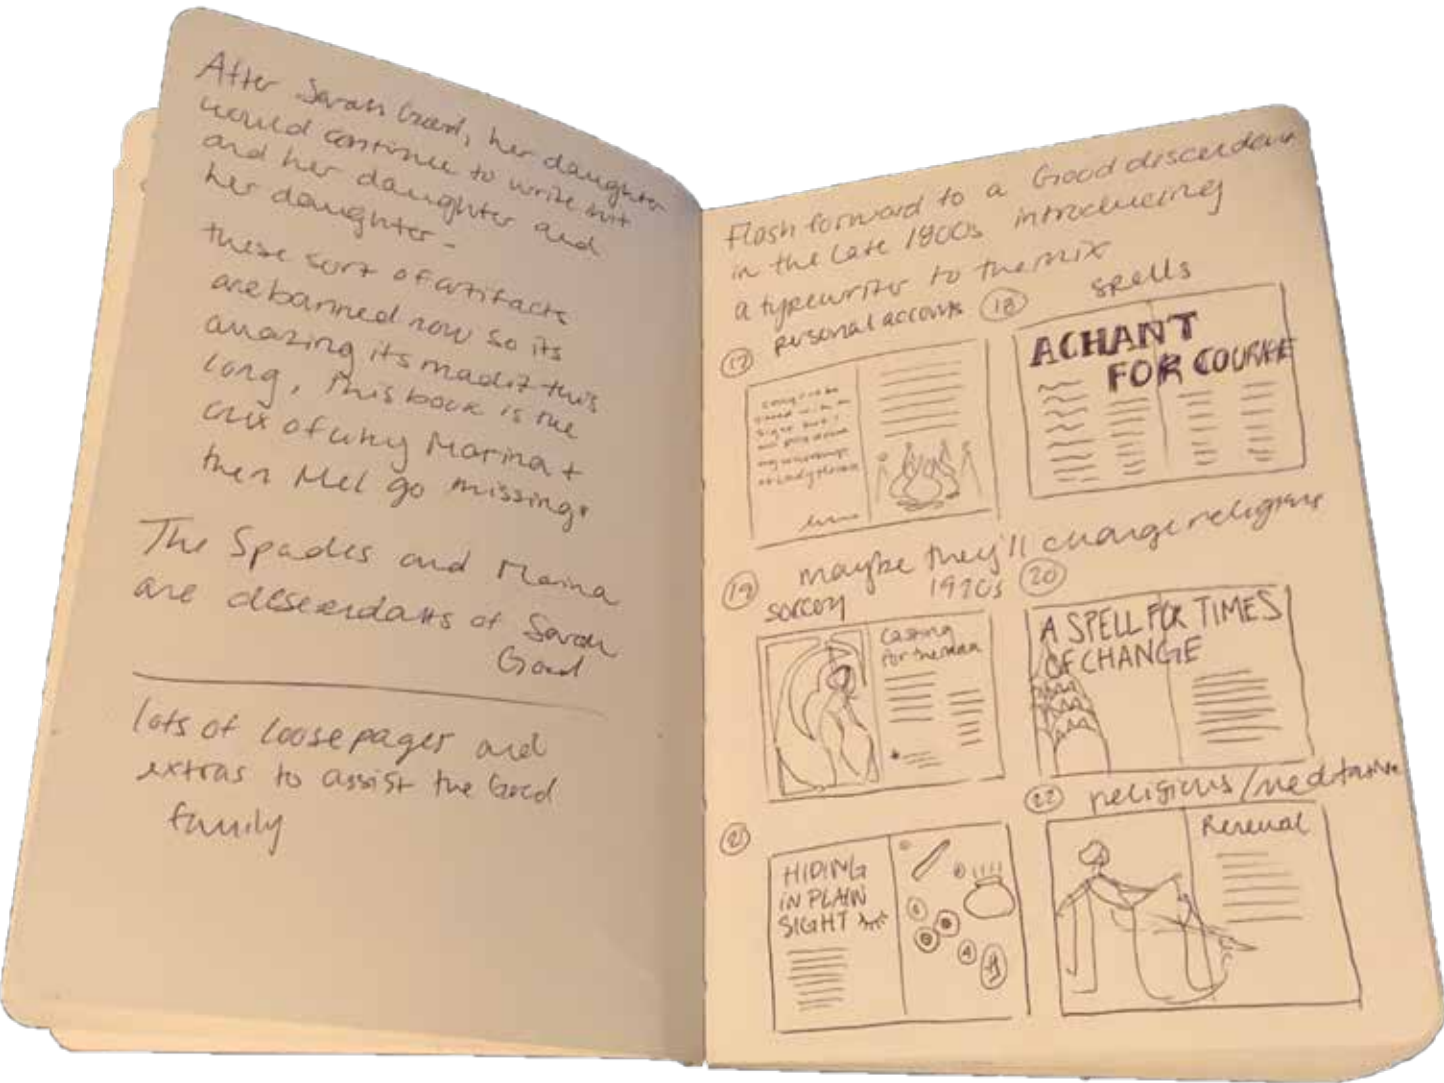 After Sarah Good, her daughter
would continue to write but
and her daughter and
her daughter -
these sort of artifacts
are banned now so its
amazing its madit this
long, This book is the
crux of why Marina +
then Mel go missing.
The Spades and Marina
are descendants of Sarah
Good
lots of loose pages and
extras to assist the Good
family
Flash forward to a Good descendant
in the late 1800s introducing
a typewriter to the mix
17 personal accounts
18 spells
A CHANT
FOR COURAGE
maybe they'll change religions
19 sorcery
1920s 20
Casting
for the man
A SPELL FOR TIMES
OF CHANGE
21
HIDING
IN PLAIN
SIGHT
22 religious/meditative
Renewal